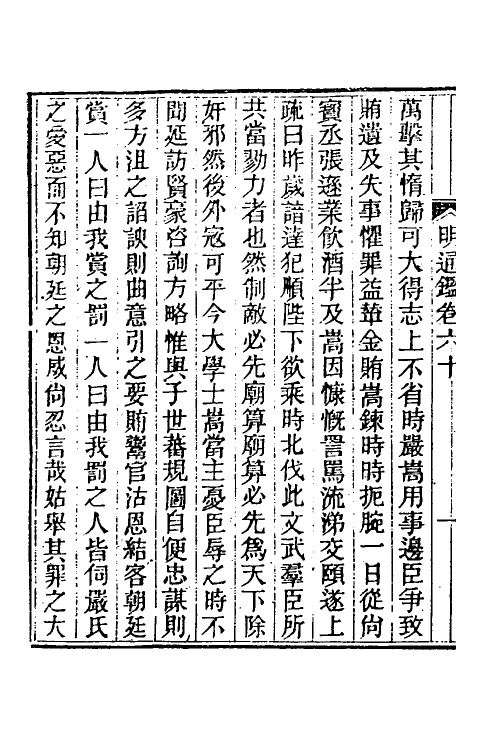 明通鑑卷六十
一
萬擊其惰歸可大得志上不省時嚴嵩用事邊臣爭致
賄遺及失事懼罪益輦金賄嵩鍊時時扼腕一日從尙
寶丞張遜業飲酒半及嵩因慷慨詈罵流涕交頤遂上
疏曰昨歲諳達犯順陛下欲乘時北伐此文武羣臣所
共當勠力者也然制敵必先廟算廟算必先爲天下除
奸邪然後外寇可平今大學士嵩當主憂臣辱之時不
聞延訪賢豪咨詢方略惟與子世蕃規圖自便忠謀則
多方沮之諂諛則曲意引之要賄鬻官沽恩結客朝廷
賞一人曰由我賞之罰一人曰由我罰之人皆伺嚴氏
之愛惡而不知朝廷之恩威尙忍言哉姑舉其罪之大